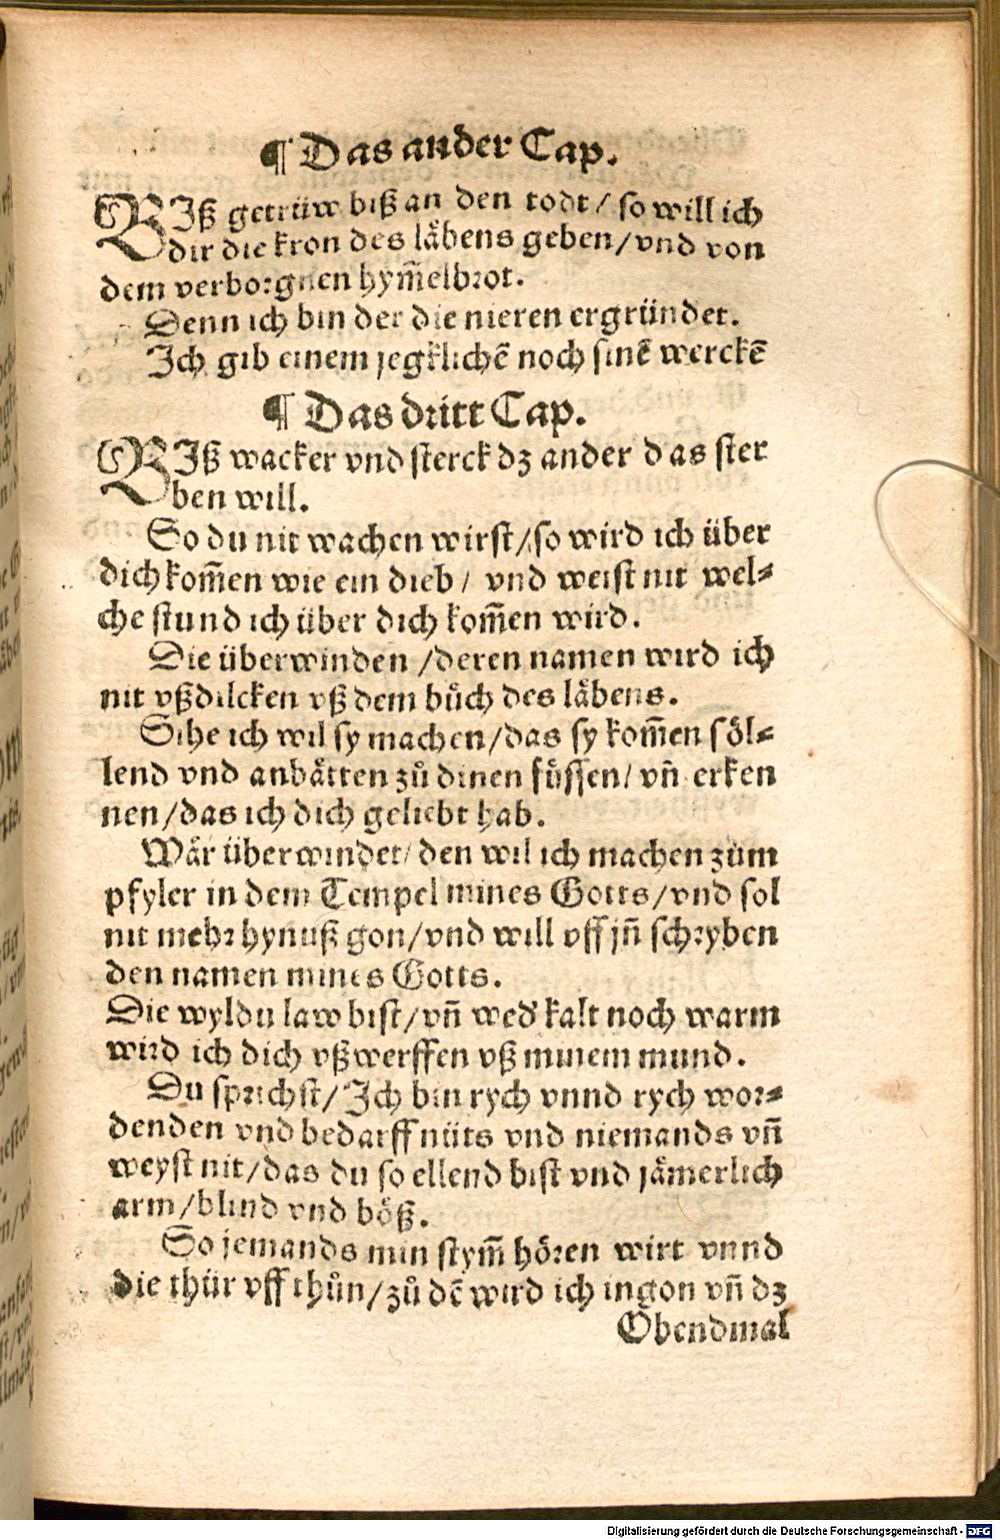 ¶ Das ander Cap.
BIß getrüw biß an den todt / so will ich
dir die kron des låbens geben / vnd von
dem verborgnen hym̃elbrot.
Denn ich bin der die nieren ergründet.
Ich gib einem jegklichē noch sinē werckē
¶ Das dritt Cap.
BIß wacker vnd sterck dz ander das ster
ben will.
So du nit wachen wirst / so wird ich über
dich kom̃en wie ein dieb / vnd weist nit wel⸗
che stund ich über dich kom̃en wird.
Die überwinden / deren namen wird ich
nit vßdilcken vß dem bůch des låbens.
Sihe ich wil sy machen / das sy kom̃en söl⸗
lend vnd anbåtten zů dinen füssen / vñ erken
nen / das ich dich geliebt hab.
Wår überwindet / den wil ich machen zům
pfyler in dem Tempel mines Gotts / vnd sol
nit mehr hynuß gon / vnd will vff jñ schryben
den namen mines Gotts.
Die wyl du law bist / vñ wed' kalt noch warm
wird ich dich vßwerffen vß minem mund.
Du sprichst / Ich bin rych vnnd rych wor⸗
denden vnd bedarff nüts vnd niemands vñ
weyst nit / das du so ellend bist vnd jåmerlich
arm / blind vnd böß.
So jemands min stym̃ hören wirt vnnd
die thür vff thůn / zů dē wird ich ingon vñ dz
Obendmal
Digitalisierung gefördert durch die Deutsche Forschungsgemeinschaft - DFG